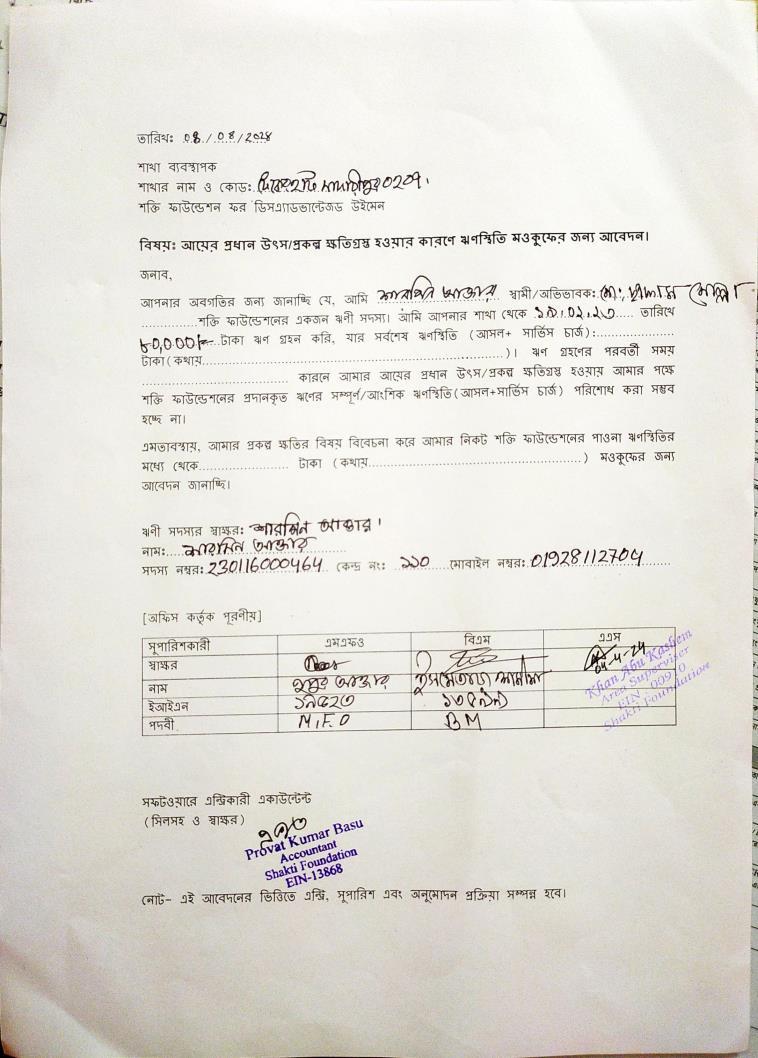 তারিখঃ 08/08/2028
শাখা ব্যবস্থাপক
শাখার নাম ও কোডঃ মাদারীপুর 0209।
শক্তি ফাউন্ডেশন ফর ডিসএ্যাডভান্টেজড উইমেন
বিষয়ঃ আয়ের প্রধান উৎস/প্রকল্প ক্ষতিগ্রস্থ হওয়ার কারণে ঋণস্থিতি মওকুফের জন্য আবেদন।
জনাব,
আপনার অবগতির জন্য জানাচ্ছি যে, আমি শারমিন আক্তার স্বামী/অভিভাবক: মো:
শক্তি ফাউন্ডেশনের একজন ঋণী সদস্য। আমি আপনার শাখা থেকে ১৯.০২.২৩ তারিখে
৮০,০০০/- টাকা ঋণ গ্রহন করি, যার সর্বশেষ ঋণস্থিতি (আসল+ সার্ভিস চার্জ):
টাকা (কথায় )। ঋণ গ্রহণের পরবর্তী সময়
কারনে আমার আয়ের প্রধান উৎস/প্রকল্প ক্ষতিগ্রস্থ হওয়ায় আমার পক্ষে
শক্তি ফাউন্ডেশনের প্রদানকৃত ঋণের সম্পূর্ণ/আংশিক ঋণস্থিতি (আসল+সার্ভিস চার্জ) পরিশোধ করা সম্ভব
হচ্ছে না।
এমতাবস্থায়, আমার প্রকল্প ক্ষতির বিষয় বিবেচনা করে আমার নিকট শক্তি ফাউন্ডেশনের পাওনা ঋণস্থিতির
মধ্যে থেকে টাকা (কথায় ) মওকুফের জন্য
আবেদন জানাচ্ছি।
ঋণী সদস্যর স্বাক্ষর: শারমিন আক্তার।
নাম: শারমিন আক্তার
সদস্য নম্বর: 230116000464 কেন্দ্র নং: ১১০ মোবাইল নম্বর: 01928112704
[অফিস কর্তৃক পূরণীয়]
সুপারিশকারী এমএফও বিএম এএস
স্বাক্ষর 04-4-24
নাম নুপুর আক্তার
ইআইএন ১৯৫২৩
পদবী M.F.O BM
Khan Abu Kashem
Area Superviser
EIN-00910
Shakti Foundation
সফটওয়ারে এন্ট্রিকারী একাউন্টেন্ট
(সিলসহ ও স্বাক্ষর)
Provat Kumar Basu
Accountant
Shakti Foundation
EIN-13868
নোট- এই আবেদনের ভিত্তিতে এন্ট্রি, সুপারিশ এবং অনুমোদন প্রক্রিয়া সম্পন্ন হবে।